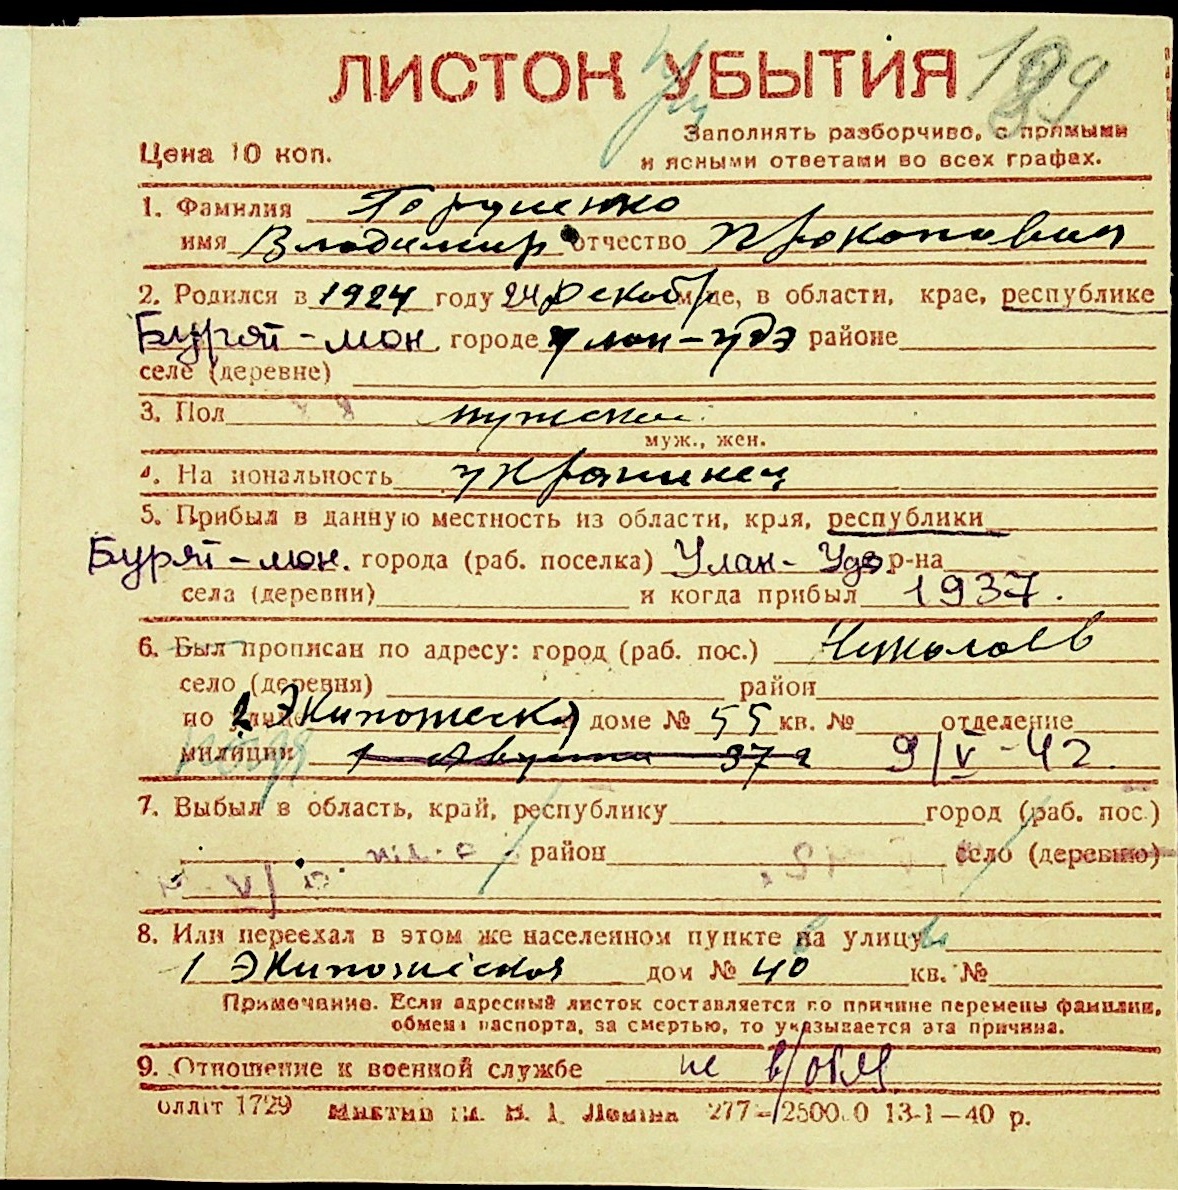 ЛИСТОК УБЫТИЯ 189
Заполнять разборчиво, с прямыми
Цена 10 коп.
и ясными ответами во всех графах.
1. Фамилия
имя Владимир отчество Прокопович
2. Родился в 1924 году 24 декабр м-це, в области, крае, республике
Бурят-мон городе Улан-Удэ районе
селе (деревне)
3. Пол мужской
муж., жен.
4. Национальность украинец
5. Прибыл в данную местность из области, края, республики
Бурят-мон. города (раб. поселка) Улан-Удэ р-на
села (деревни) и когда прибыл 1937.
6. Был прописан по адресу: город (раб. пос.) Николаев
село (деревня) район
по улице 2 Экипажеская доме № 55 кв. № отделение
милиции 1 Августа 37 г 9/V-42.
7. Выбыл в область, край, республику город (раб. пос.)
район село (деревню)
8. Или переехал в этом же населенном пункте на улицу
1 Экипажеская дом № 40 кв. №
Примечание. Если адресный листок составляется по причине перемены фамилии,
обмена паспорта, за смертью, то указывается эта причина.
9. Отношение к военной службе не в/обяз
Олліт 1729 277—2500.0 13-1—40 р.